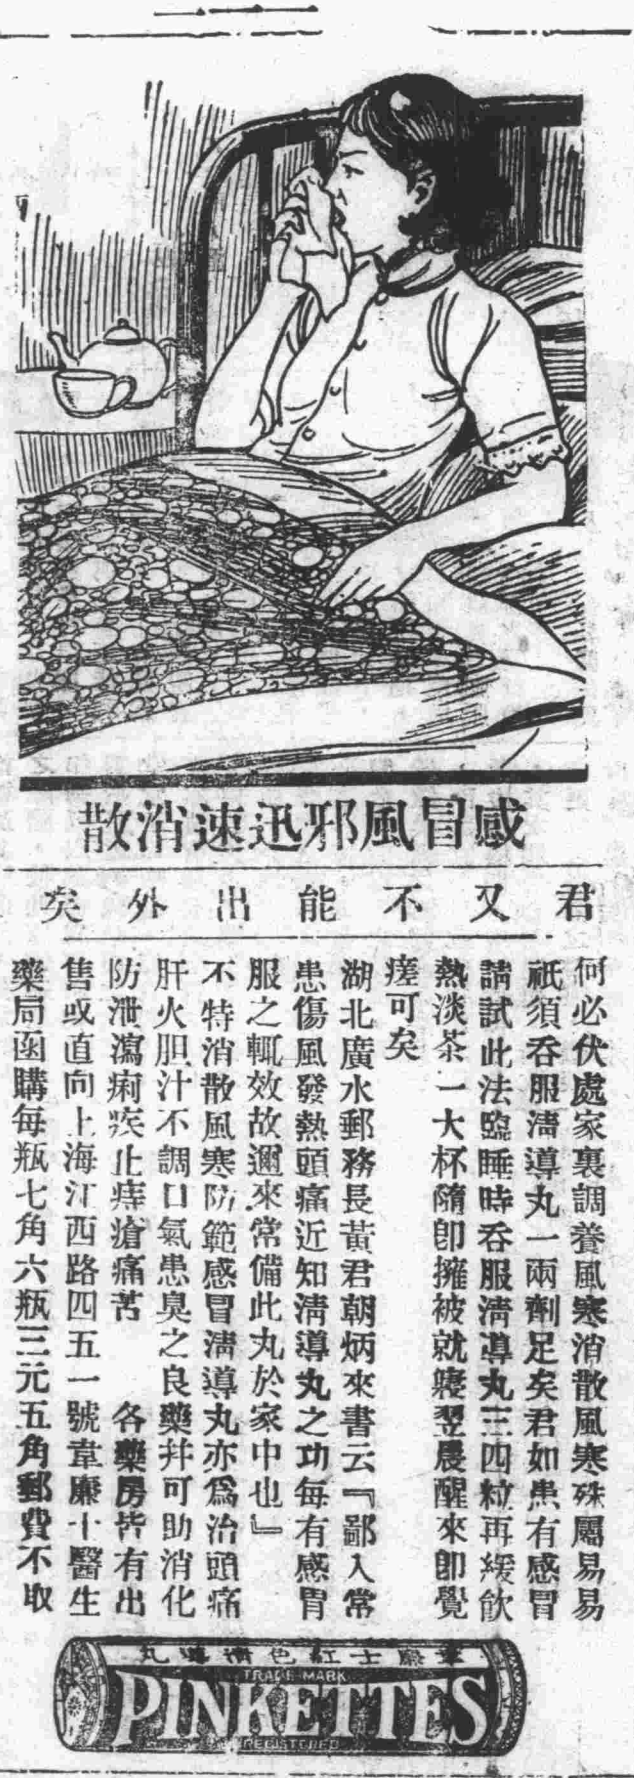 感冒風邪迅速消散
君又不能出外矣
何必伏處家裏調養風寒消散風寒殊屬易易
祇須吞服清導丸一兩劑足矣君如患有感冒
請試此法臨睡時吞服清導丸三四粒再緩飲
熱淡茶一大杯隨卽擁被就寢翌晨醒來卽覺
瘥可矣
湖北廣水郵務長黃君朝炳來書云『鄙人常
患傷風發熱頭痛近知清導丸之功每有感冒
服之輒效故邇來常備此丸於家中也』
不特消散風寒防範感冒清導丸亦爲治頭痛
肝火胆汁不調口氣患臭之良藥幷可助消化
防泄瀉痢疾止痔瘡痛苦　各藥房皆有出
售或直向上海江西路四五一號韋廉士醫生
藥局函購每瓶七角六瓶三元五角郵費不取
韋廉士紅色清導丸
TRADE MARK
PINKETTES
REGISTERED